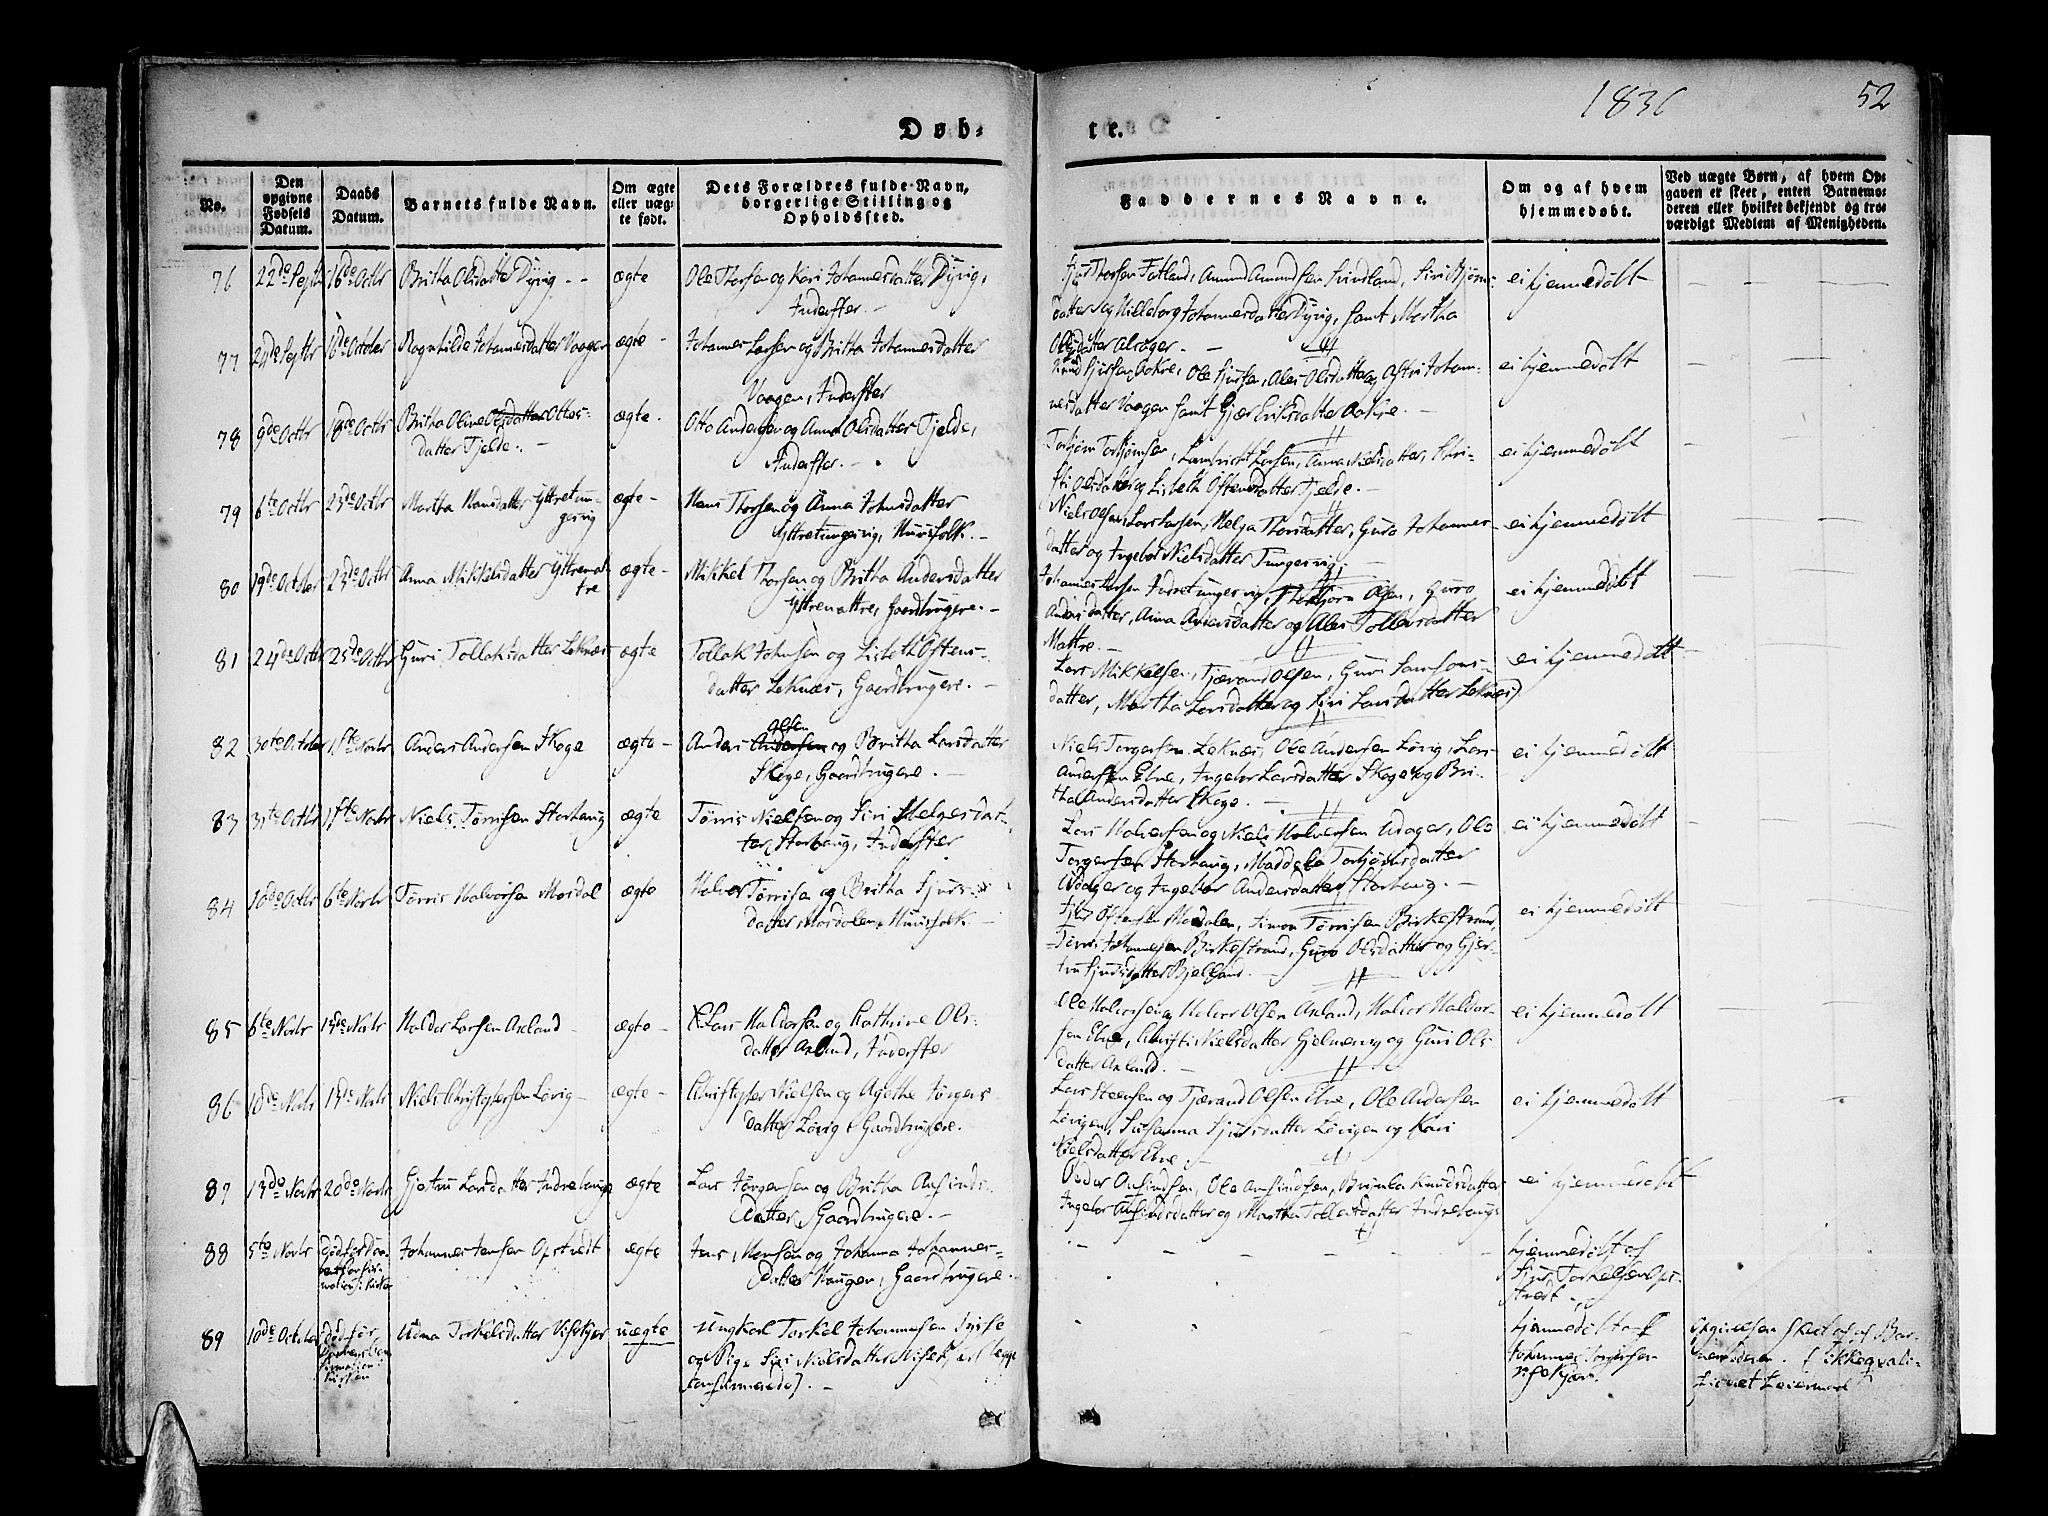 1836
52
Døb-
te.
No.
Den opgivne Fødsels Datum.
Daabs Datum.
Barnets fulde Navn.
Om ægte eller uæg- te født.
Dets Forældres fulde Navn, borgerlige Stilling og Opholdssted.
Faddernes Navne.
Om og af hvem hjemmedøbt.
Ved uægte Børn, af hvem Op- gaven er skeet, enten Barnemo- deren eller hvilket bekjendt og tro- værdigt Medlem af Menigheden.
76 22de Septr 16de Octbr Britha Olsdatter Dyvig ægte Ole Thorsen og Kari Johannesdatter Dyvig,
Inderster.
Thorsen Fatland, Amund Amundsen Svindland, Siri Bjørns-
datter og Hilleborg Johannesdatter Dyvig, samt Martha
Olsdatter
ei hjemmedøbt
77 24de Septbr 16de October Ragnhilde Johannesdatter Vaagen ægte Johannes Larsen og Britha Johannesdatter
Vaagen, Inderster
Knud Sjursen Aakre, Ole Sjursen, Ales Olsdatter og Astri Johan-
nesdatter Vaagen samt Eriksdatter Aakre.
ei hjemmedøbt
78 9de Octbr 18de Octbr Britha Oline Olsdatter Ottos-
datter Tjelde. ægte Otto Andersen og Anna Olsdatter Tjelde,
Inderster.
Torbjørn Torbjørnsen, Lambricht Larsen, Anna Nielsdatter, Chri-
sti Olsdatter og Lisbeth Ostensdatter Tjelde.
ei hjemmedøbt
79 6te Octbr 23de Octbr Martha Hansdatter Yttretun-
gesvig ægte Hans Thorsen og Anna Johnsdatter
Yttretungesvig, Huusfolk.
Niels Olsen, Lars Larsen, Helga Thorsdatter, Guro Johannes-
datter og Ingebor Nielsdatter Tungesvig.
ei hjemmedøbt
80 19de October 23de Octbr Anna Mikkelsdatter Yttremat-
tre ægte Mikkel Thorsen og Britha Andersdatter
Yttremattre, Gaardbrugere.
Johannes Larsen Indretungesvig, Thorbjørn Olsen, Guro
Andersdatter, Anna Andersdatter og Ales Tollevsdatter
Mattre.
ei hjemmedøbt
81 24de Octbr 25de Octbr Guri Tollaksdatter Leknæs ægte Tollak Johnsen og Lisbeth Ostens-
datter Leknæs, Gaardbrugere.
Lars Mikkelsen, Tjærand Olsen, Guri Samsons-
datter, Martha Larsdatter og Siri Larsdatter Leknæs
ei hjemmedøbt
82 30te October 1ste Novbr Anders Andersen Skoge ægte Anders Andersen Olsen og Britha Larsdatter
Skoge, Gaardbrugere.
Niels Torgersen Leknæs, Ole Andersen Løvig, Lars
Andersen Elve, Ingebor Larsdatter Skoge og Bri-
tha Andersdatter Skoge.
ei hjemmedøbt
83 31te Octbr 1ste Novbr Niels Tørrisen Storhaug ægte Tørris Nielsen og Siri Helgesdat-
ter Storhaug, Inderster
Lars Halversen og Niels Halversen Udager, Ole
Torgersen Storhaug, Maddela Torbjørnsdatter
Udager og Ingebor Andersdatter Storhaug.
ei hjemmedøbt
84 10de Octbr 6te Novbr Tørris Halvorsen Mosdal ægte Halvor Tørrisen og Britha Sjurs-
datter Mosdalen, Huusfolk
Sjur Ostensen Mosdalen, Simon Tørrisen Birkestrand,
Tørris Johannesen Birkestrand, Guro Olsdatter og Gjer-
tru Sjursdatter Bjelland.
ei hjemmedøbt
85 6te Novbr 13de Novbr Haldor Larsen Axland ægte Lars Haldorsen og Kathrine Ols-
datter Axland, Inderster
Ole Halvorsen og Halvor Olsen Axland, Halvor Haldor-
sen Elve, Christi Nielsdatter Gjelmervig og Guri Ols-
datter Axland.
ei hjemmedøbt
86 10de Novbr 13de Novbr Niels Christophersen Løvig ægte Christopher Nielsen og Agathe Jørgens-
datter Løvig, Gaardbrugere.
Lars Steensen og Tjærand Olsen Elve, Ole Andersen
Løvigen, Susanna Sjursdatter Løvigen og Kari
Nielsdatter Elve.
ei hjemmedøbt
87 13de Novbr 20de Novbr Gjertru Larsdatter Indrehauge ægte Lars Jørgensen og Britha Anfinds-
datter, Gaardbrugere.
Peder Anfindsen, Ole Anfindsen, Brinla Knudsdatter
Ingebor Anfindsdatter og Martha Tollaksdatter Indrehauge
ei hjemmedøbt
88 5te Novbr død før Daa-
bens Confir-
mation i Kirken Johannes Jensen Opstvedt ægte Jens Monsen og Johanna Johannes-
datter Haugen, Gaardbrugere.
hjemmedøbt af
Sjur Torkelsen Op-
stvedt
89 10de October død før
Daabens Con-
firmation i
Kirken Udma Torkelsdatter Vissekjær uægte Ungkarl Torkel Johannesen
og Pige Siri Nielsdatter (begge
confirmerede).
hjemmedøbt af
Johannes Torgersen
Opgivelsen skeet af Bar-
nemoderen. (ikke qvali-
ficeret Leiermaal